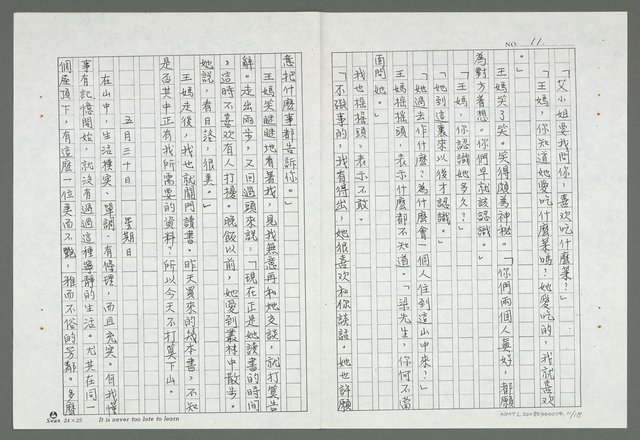 NO. 11.
「艾小姐要我問你，喜欢吃什麼菜？」
「王媽，你知道她愛吃什麼菜嗎？她愛吃的，我就喜欢
。」
王媽笑了笑。笑得頗為神秘。「你們两個人真好，都願
為對方着想。你們早就該認識。」
「王媽，你認識她多久？」
「她到這裏來以後才認識。」
「她過去作什麼？為什麼會一個人住到這山中來？」
王媽搖搖頭，表示什麼都不知道。「梁先生，你何不當
面問她。」
我也搖搖頭，表示不敢。
「不碍事的，我看得出，她很喜欢和你談話。她也許願
意把什麼事都告訴你。」
王媽笑瞇瞇地看著我，見我無意再和她交談，就打算告
辭。走出兩步，又回過頭來說：「現在正是她讀書的時間
，這時不喜欢有人打擾。晚飯以前，她愛到叢林中散步。
她說，看日落，很美。」
王媽走後，我也就關門讀書。昨天買來的幾本書，不知
是否其中正有我所需要的資料？所以今天不打算下山。
五月三十日　星期日
在山中，生活樸实、單調、有條理，而且充实。自我懂
事有記憶開始，就沒有過過這種寧靜的生活。尤其在同一
個屋頂下，有這麼一位美而不艷，雅而不俗的芳鄰。多麼
Swan 24×25 It is never too late to learn